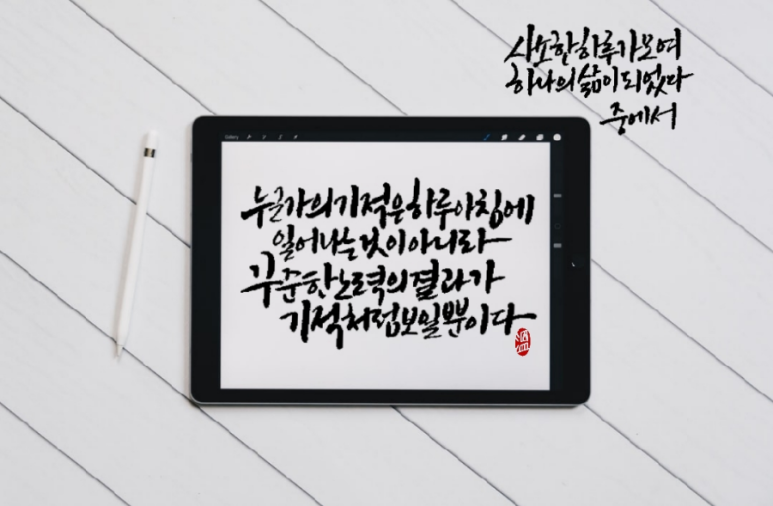 사소한 하루가 모여
하나의 삶이 되었다
중에서
Gallery
누군가의 기적은 하루아침에
일어나는 것이 아니라
꾸준한 노력의 결과가
기적처럼 보일 뿐이다
温